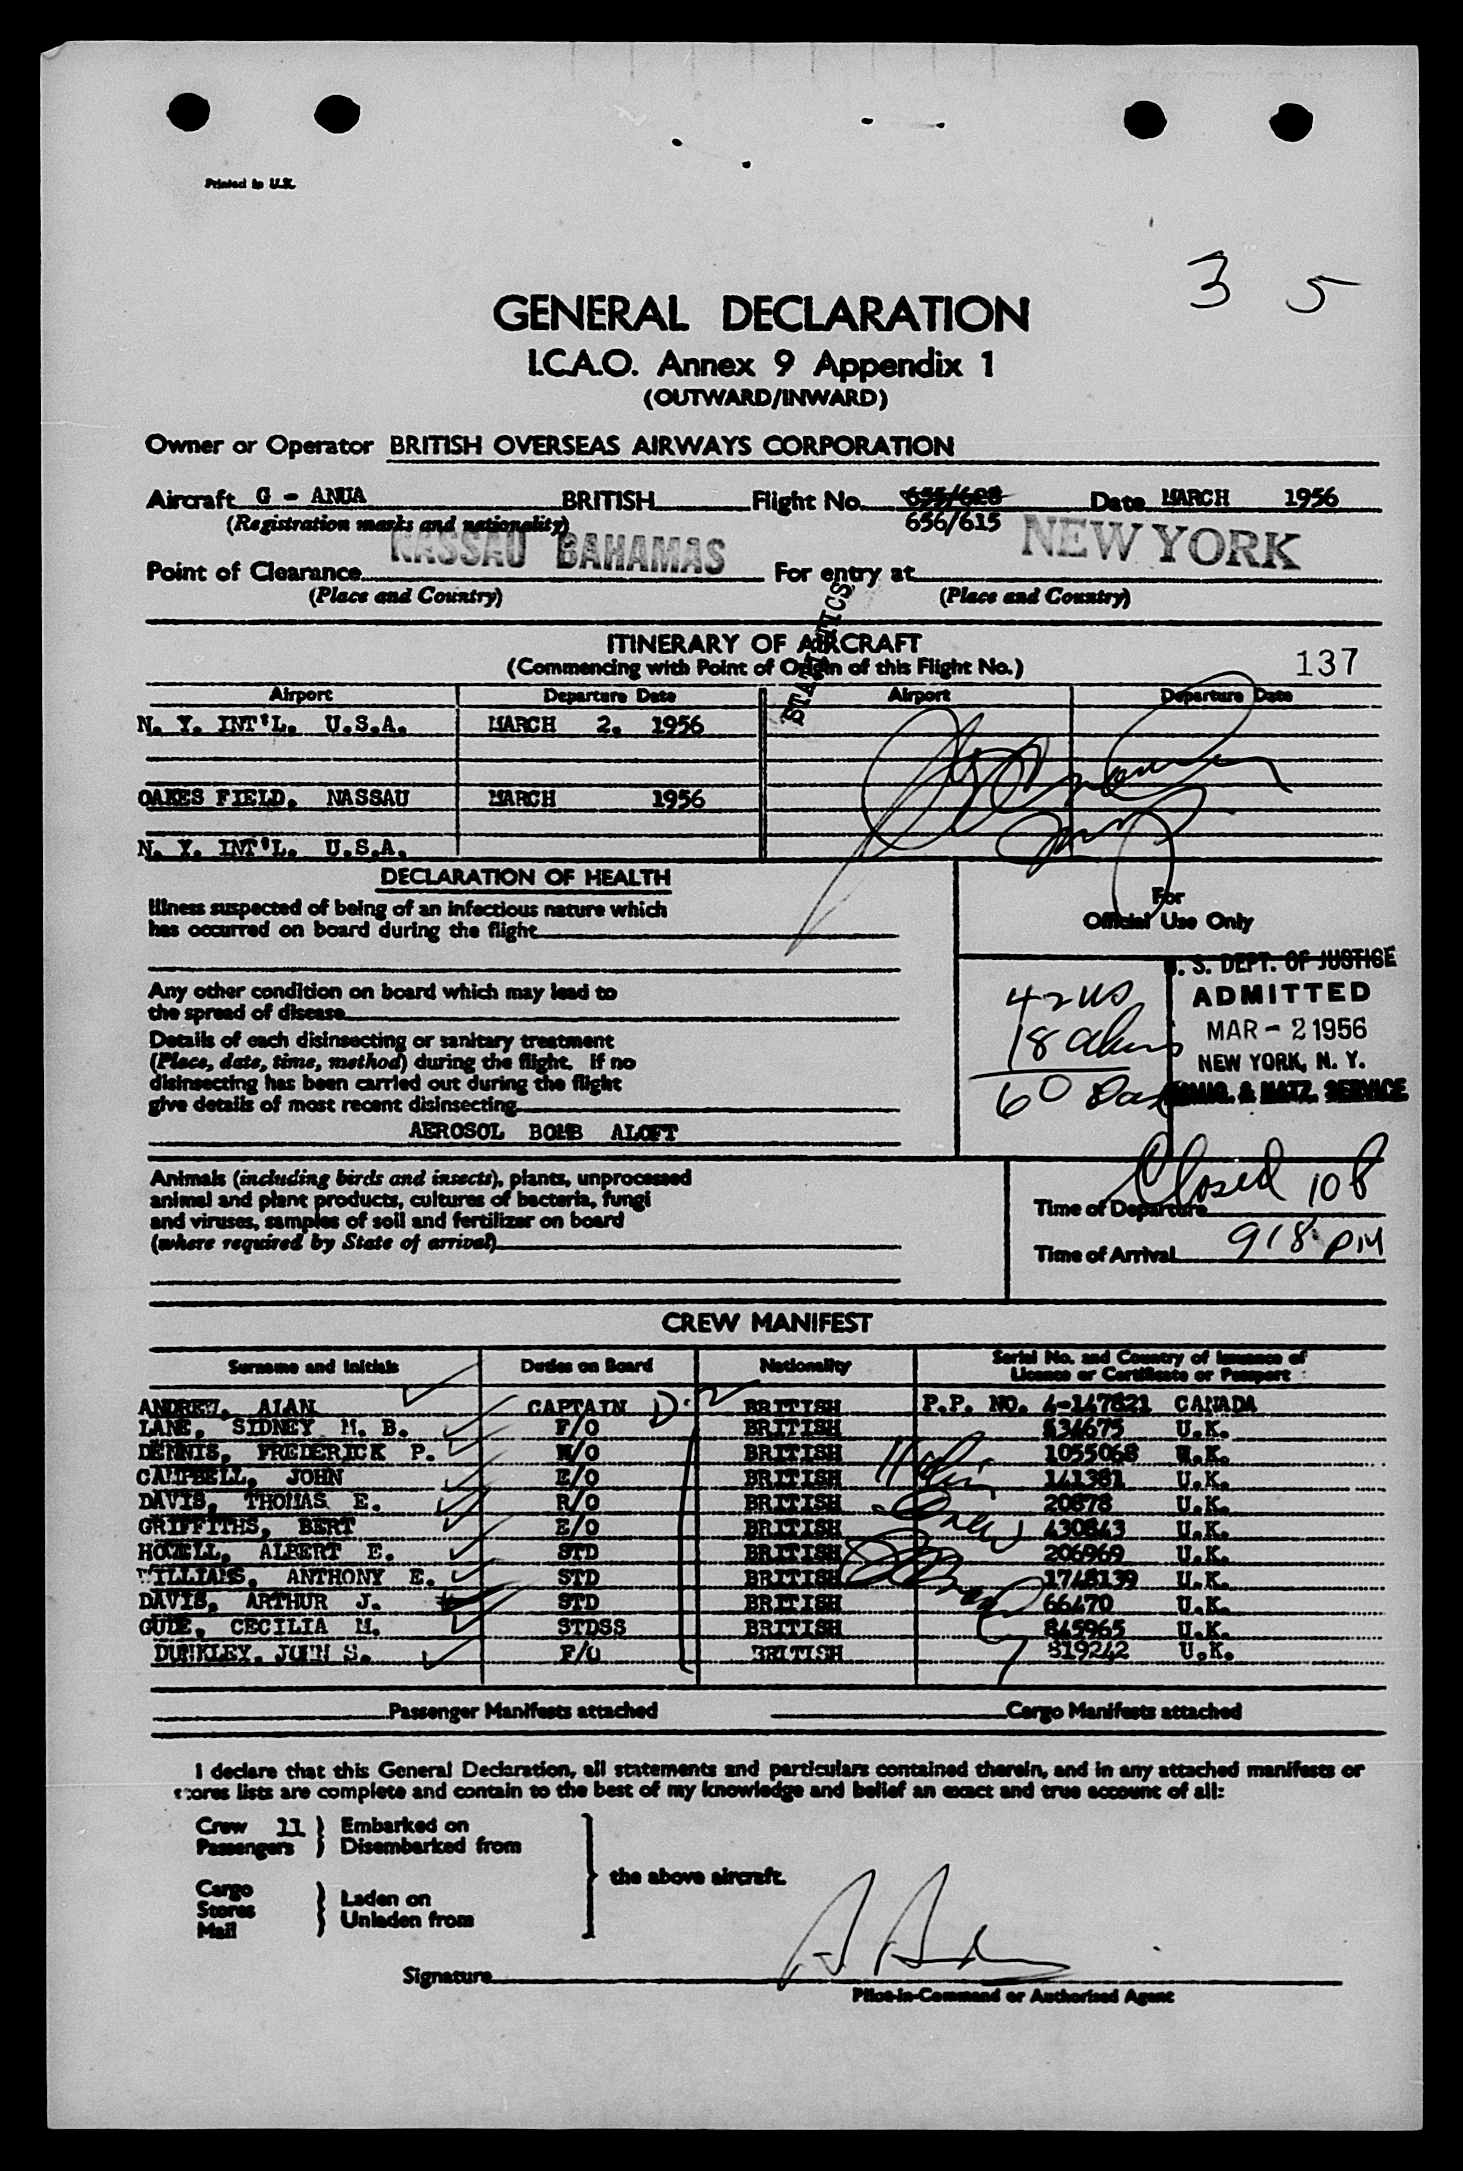 Printed in U.K.
3 5
GENERAL DECLARATION
I.C.A.O. Annex 9 Appendix 1
(OUTWARD/INWARD)
Owner or Operator BRITISH OVERSEAS AIRWAYS CORPORATION
Aircraft G - ANUA BRITISH Flight No. 655/628 Date MARCH 1956
(Registration marks and nationality) 656/615
Point of Clearance NASSAU BAHAMAS For entry at NEW YORK
(Place and Country) (Place and Country)
STATISTICS
ITINERARY OF AIRCRAFT
(Commencing with Point of Origin of this Flight No.) 137
Airport Departure Date Airport Departure Date
N. Y. INT'L. U.S.A. MARCH 2. 1956
OAKES FIELD, NASSAU MARCH 1956
N. Y. INT'L. U.S.A.
DECLARATION OF HEALTH
Illness suspected of being of an infectious nature which
has occurred on board during the flight
For
Official Use Only
Any other condition on board which may lead to
the spread of disease
Details of each disinsecting or sanitary treatment
(Place, date, time, method) during the flight. If no
disinsecting has been carried out during the flight
give details of most recent disinsecting
AEROSOL BOMB ALOFT
42 US
18 aliens
60
U. S. DEPT. OF JUSTICE
ADMITTED
MAR - 2 1956
NEW YORK, N. Y.
IMMIG. & NATZ. SERVICE
Animals (including birds and insects), plants, unprocessed
animal and plant products, cultures of bacteria, fungi
and viruses, samples of soil and fertilizer on board
(where required by State of arrival)
Time of Departure Closed 10 P
Time of Arrival 918 PM
CREW MANIFEST
Surname and Initials Duties on Board Nationality Serial No. and Country of Issuance of
Licence or Certificate or Passport
ANDREW, ALAN CAPTAIN BRITISH P.P. NO. 4-147821 CANADA
LANE, SIDNEY M. B. F/O BRITISH 834675 U.K.
DENNIS, FREDERICK P. N/O BRITISH 1055068 U.K.
CAMPBELL, JOHN E/O BRITISH 141381 U.K.
DAVIS, THOMAS E. R/O BRITISH 20878 U.K.
GRIFFITHS, BERT E/O BRITISH 430843 U.K.
HOWELL, ALBERT E. STD BRITISH 206969 U.K.
WILLIAMS, ANTHONY E. STD BRITISH 1748139 U.K.
DAVIS, ARTHUR J. STD BRITISH 66470 U.K.
GUDE, CECILIA M. STDSS BRITISH 845965 U.K.
DUNKLEY, JOHN S. F/O BRITISH 819242 U.K.
Passenger Manifests attached Cargo Manifests attached
I declare that this General Declaration, all statements and particulars contained therein, and in any attached manifests or
stores lists are complete and contain to the best of my knowledge and belief an exact and true account of all:
Crew 11 } Embarked on
Passengers } Disembarked from
the above aircraft.
Cargo
Stores } Laden on
Mail } Unladen from
Signature
Pilot-in-Command or Authorised Agent